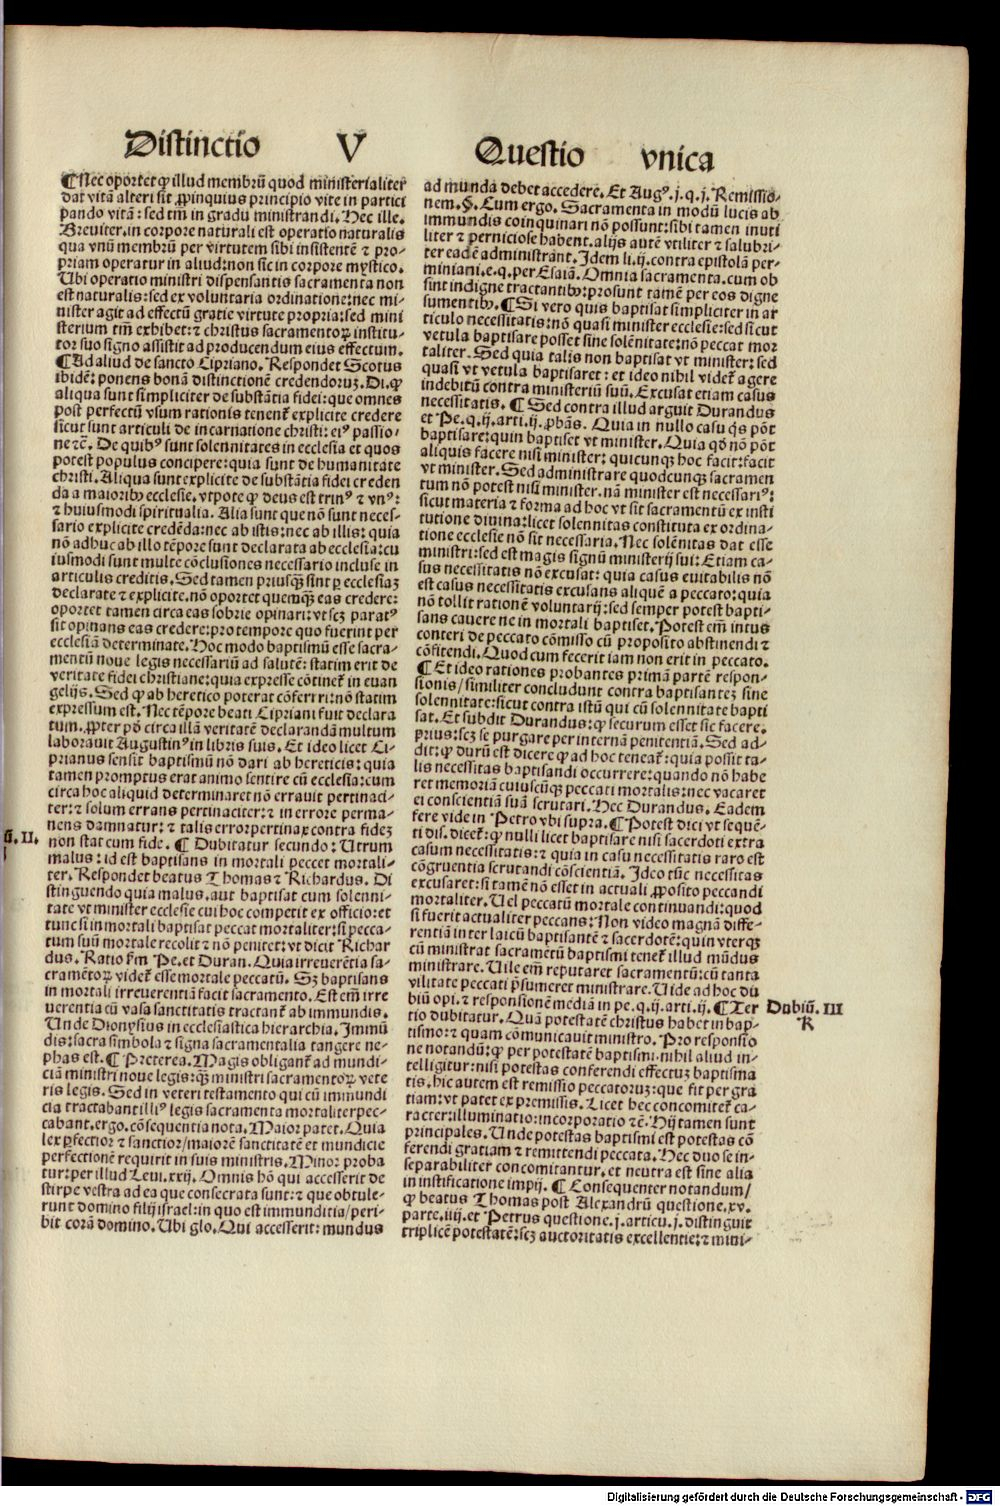 Distinctio V Questio vnica
¶Nec oportet ꝙ illud membrū quod ministerialiter
dat vitā alteri sit ꝓpinquius principio vite in partici
pando vitā: sed tm̄ in gradu ministrandi. Hec ille.
Breuiter. in corpore naturali est operatio naturalis
qua vnū membrū per virtutem sibi insistentē ⁊ pro-
priam operatur in aliud: non sic in corpore mystico.
Ubi operatio ministri dispensantis sacramenta non
est naturalis: sed ex voluntaria ordinatione: nec mi-
nister agit ad effectū gratie virtute propria: sed mini
sterium tm̄ exhibet: ⁊ christus sacramentoꝝ institu-
tor suo signo assistit ad producendum eius effectum.
¶Ad aliud de sancto Cipriano. Respondet Scotus
ibidē: ponens bonā distinctionē credendoruꝫ. Di. ꝙ
aliqua sunt simpliciter de substātia fidei: que omnes
post perfectū vsum rationis tenent᷑ explicite credere
sicut sunt articuli de incarnatione christi: eiꝰ passio-
ne ⁊c̄. De quibꝰ sunt solennitates in ecclesia et quos
potest populus concipere: quia sunt de humanitate
christi. Aliqua sunt explicite de substātia fidei creden
da a maioribꝰ ecclesie. vtpote ꝙ deus est trinꝰ ⁊ vnꝰ:
⁊ huiusmodi spiritualia. Alia sunt que nō sunt neces-
sario explicite credēda: nec ab istis: nec ab illis: quia
nō adhuc ab illo tēpore sunt declarata ab ecclesia: cu
iusmodi sunt multe cōclusiones necessario incluse in
articulis creditis. Sed tamen priusqꝫ̄ sint ꝑ ecclesiaꝫ
declarate ⁊ explicite. nō oportet quemqꝫ̄ eas credere:
oportet tamen circa eas sobrie opinari: vt scꝫ paratꝰ
sit opinans eas credere: pro tempore quo fuerint per
ecclesiā determinate. Hoc modo baptismū esse sacra-
mentū noue legis necessariū ad salutē: statim erit de
veritate fidei christiane: quia expresse cōtinet᷑ in euan
gelijs. Sed ꝙ ab heretico poterat cōferri: nō statim
expressum est. Nec tēpore beati Cipriani fuit declara
tum. ꝓpter ꝙ circa illā veritatē declarandā multum
laborauit Augustinꝰ in libris suis. Et ideo licet Ci-
prianus sensit baptismū nō dari ab hereticis: quia
tamen promptus erat animo sentire cū ecclesia: cum
circa hoc aliquid determinaret nō errauit pertinaci-
ter: ⁊ solum errans pertinaciter: ⁊ in errore perma-
nens damnatur: ⁊ talis error pertinax contra fideꝫ
non stat cum fide. ¶ Dubitatur secundo: Utrum
malus: id est baptisans in mortali peccet mortali-
ter. Respondet beatus Thomas ⁊ Richardus. Di
stinguendo quia malus. aut baptisat cum solenni-
tate vt minister ecclesie cui hoc competit ex officio: et
tunc si in mortali baptisat peccat mortaliter: si pecca-
tum suū mortale recolit ⁊ nō penitet: vt dicit Richar
dus. Ratio ẜm Pe. et Duran. Quia irreuerētia sa-
cramētoꝝ videt᷑ esse mortale peccatū. Sꝫ baptisans
in mortali irreuerentiā facit sacramento. Est em̄ irre
uerentia cū vasa sanctitatis tractant᷑ ab immundis.
Unde Dionysius in ecclesiastica hierarchia. Immū
dis: sacra simbola ⁊ signa sacramentalia tangere ne-
phas est. ¶ Preterea. Magis obligant᷑ ad mundi-
ciā ministri noue legis: qꝫ̄ ministri sacramentoꝝ vete
ris legis. Sed in veteri testamento qui cū immundi
cia tractabant illiꝰ legis sacramenta mortaliter pec-
cabant. ergo. cōsequentia nota. Maior patet. Quia
lex ꝑfectior ⁊ sanctior/maiorē sanctitatē et mundicie
perfectionē requirit in suis ministris. Minor proba
tur: per illud Leui. xxij. Omnis hō qui accesserit de
stirpe vestra ad ea que consecrata sunt: ⁊ que obtule-
runt domino filij israel: in quo est immunditia/peri-
bit corā domino. Ubi glo. Qui accesserit: mundus
ū. II.
ad munda debet accedere. Et Augꝰ. j. q. j. Remissio-
nem. §. Cum ergo. Sacramenta in modū lucis ab
immundis coinquinari nō possunt: sibi tamen inuti
liter ⁊ perniciose habent. alijs autē vtiliter ⁊ salubri-
ter eadē administrant. Idem li. ij. contra epistolā per-
miniani. e. q. per Esaiā. Omnia sacramenta. cum ob
sint indigne tractantibꝰ: prosunt tamē per eos digne
sumentibꝰ. ¶ Si vero quis baptisat simpliciter in ar
ticulo necessitatis: nō quasi minister ecclesie: sed sicut
vetula baptisare posset sine solēnitate: nō peccat mor
taliter. Sed quia talis non baptisat vt minister: sed
quasi vt vetula baptisaret: et ideo nihil videt᷑ agere
indebitū contra ministeriū suū. Excusat etiam casus
necessitatis. ¶ Sed contra illud arguit Durandus
et Pe. q. ij. arti. ij. ꝓbās. Quia in nullo casu qͥs pōt
baptisare: quin baptiset vt minister. Quia qd̄ nō pōt
aliquis facere nisi minister: quicunqꝫ hoc facit: facit
vt minister. Sed administrare quodcunqꝫ sacramen
tum nō potest nisi minister. nā minister est necessariꝰ:
sicut materia ⁊ forma ad hoc vt sit sacramentū ex insti
tutione diuina: licet solennitas constituta ex ordina-
tione ecclesie nō sit necessaria. Nec solēnitas dat esse
ministri: sed est magis signū ministerij sui: Etiam ca-
sus necessitatis nō excusat: quia casus euitabilis nō
est casus necessitatis excusans aliquē a peccato: quia
nō tollit rationē voluntarij: sed semper potest bapti-
sans cauere ne in mortali baptiset. Potest em̄ intus
conteri de peccato cōmisso cū proposito abstinendi ⁊
cōfitendi. Quod cum fecerit iam non erit in peccato.
¶ Et ideo rationes probantes primā partē respon-
sionis/similiter concludunt contra baptisanteꝫ sine
solennitate: sicut contra istū qui cū solennitate bapti
sat. Et subdit Durandus: ꝙ securum esset sic facere.
prius: scꝫ se purgare per internā penitentiā. Sed ad-
dit: ꝙ durū est dicere ꝙ ad hoc teneat᷑: quia possit ta-
lis necessitas baptisandi occurrere: quando nō habe
ret memoriā cuiuscūqꝫ peccati mortalis: nec vacaret
ei conscientiā suā scrutari. Hec Durandus. Eadem
fere vide in Petro vbi supra. ¶ Potest dici vt sequē-
ti dis. dicet᷑: ꝙ nulli licet baptisare nisi sacerdoti extra
casum necessitatis: ⁊ quia in casu necessitatis raro est
cōgruentia scrutandi cōscientiā. Ideo tūc necessitas
excusaret: si tamē nō esset in actuali ꝓposito peccandi
mortaliter. Uel peccatū mortale continuandi: quod
si fuerit actualiter peccans: Non video magnā diffe-
rentiā inter laicū baptisantē ⁊ sacerdotē: quin vterqꝫ
cū ministrat sacramētū baptismi tenet᷑ illud mūdus
ministrare. Uile em̄ reputaret sacramentū: cū tanta
vilitate peccati p̄sumeret ministrare. Uide ad hoc du
biū opi. ⁊ responsionē mediā in pe. q. ij. arti. ij. ¶ Ter
tio dubitatur. Quā potestatē christus habet in bap-
tismo: ⁊ quam cōmunicauit ministro. Pro responsio
ne notandū: ꝙ per potestatē baptismi. nihil aliud in-
telligitur: nisi potestas conferendi effectuꝫ baptisma
tis. hic autem est remissio peccatoruꝫ: que fit per gra
tiam: vt patet ex premissis. Licet hec concomitet᷑ ca-
racter: illuminatio: incorporatio ⁊c̄. Hij tamen sunt
principales. Unde potestas baptismi est potestas cō
ferendi gratiam ⁊ remittendi peccata. Hec duo se in-
separabiliter concomitantur. et neutra est sine alia
in iustificatione impij. ¶ Consequenter notandum/
ꝙ beatus Thomas post Alexandrū questione. xv.
parte. iiij. et Petrus questione. j. articu. j. distinguit
triplicē potestatē: scꝫ auctoritatis excellentie: ⁊ mini-
Dubiū. III
R
Digitalisierung gefördert durch die Deutsche Forschungsgemeinschaft - DFG